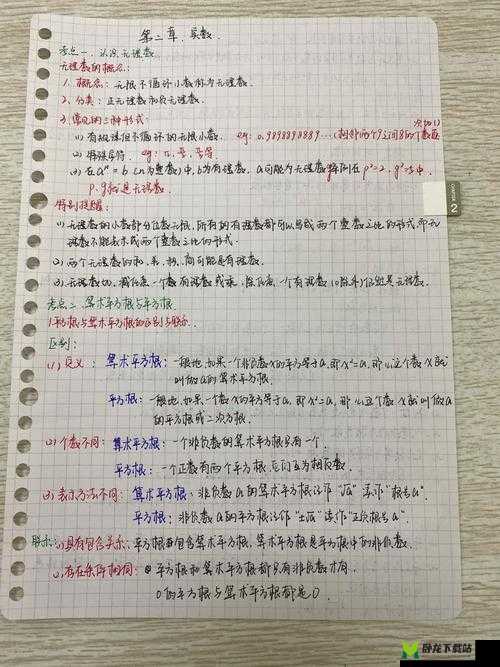 第二章 实数
考点一、认识无理数
无理数的概念:
1. 概念: 无限不循环小数称为无理数.
2. 分类: 正无理数和负无理数.
3. 常见的三种形式:
(1) 有规律但不循环的无限小数. eg: 0.9898898889...(相邻两个9之间8的个数
次加1)
(2) 特殊字符. eg: π,
(3) 在aⁿ=b (n为整数)中, b为有理数, a可能为无理数 p²=2, q³=5中,
p.q就是无理数.
特别提醒:
(1) 无理数的小数部分位数无限, 所有的有理数都可以写成两个整数之比的形式, 而无
理数不能表示成两个整数之比的形式.
(2) 两个无理数的和、差、积、商可能是有理数.
(3) 无理数加、减任意一个数有理数或乘、除任意一个有理数(0除外)仍然是无理数.
考点二、算术平方根与平方根
1.平方根与算术平方根的区别与联系.
区别:
(1) 定义: 算术平方根: 一般地, 如果一个非负数x的平方等于a, 即x²=a, 那么这个数x就
叫做a的算术平方根.
平方根: 一般地, 如果一个数x的平方等于a, 即x²=a, 那么这个数x就叫做a
的平方根或二次方根.
(2) 个数不同: 算术平方根: 一个非负数的算术平方根只有一个.
平方根: 一个正数有两个平方根, 它们互为相反数.
(3) 表示方法不同: 算术平方根: 非负数a的算术平方根记作"√a" 读作"根号a".
平方根: 非负数a的平方根记作"±√a" 读作"正负根号a".
联系: (1) 具有包含关系: 平方根包含算术平方根, 算术平方根是平方根中的非负数.
(2) 存在条件相同: 平方根和算术平方根都只有非负数才有.
0的平方根与算术平方根都是0.
CHAPTER
2
卧龙下载站